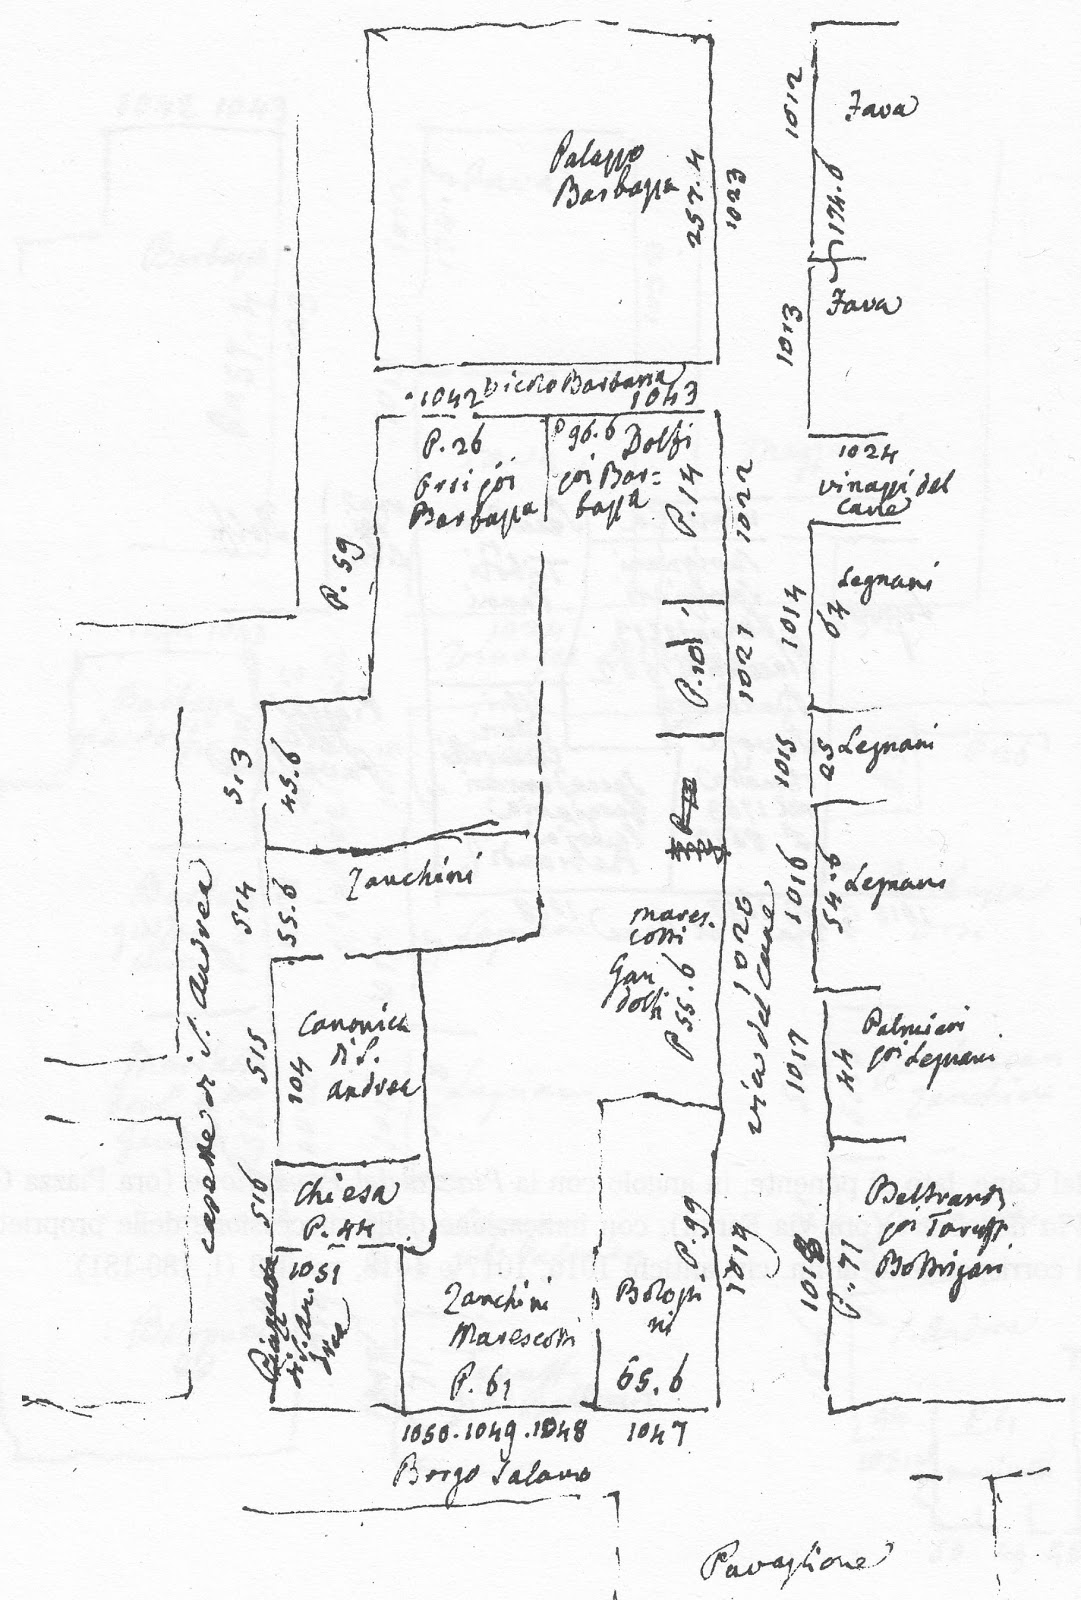 1012
Fava
Palazzo
Barbazza
257.4
1023
174.6
Fava
1013
1042
Vicolo Barbaria
1043
P.26
Orsi poi
Barbazza
P 96.6
Dolfi
poi Bar=
bazza
P.14
1022
1024
vinazzi del
Cane
P.59
Legnani
67
1014
P.101
1021
513
45.6
1015
25
Legnani
514
55.6
Zanchini
1016
54.6
Legnani
mares-
cotti
Gan
dolfi
P 55.6
1020
via del Cane
capette di S. Andrea
515
104
Canonica
di S.
Andrea
1017
44
Palmieri
poi Legnani
516
Chiesa
P.44
1051
Piazzola
di S. An.
drea
Zanchini
Marescotti
P.61
P.99
Bolog
ni
65.6
1019
1018
P.71
Beltrandi
poi Taruffi
Bottrigari
1050.1049.1048
1047
Borgo Salamo
Pavaglione